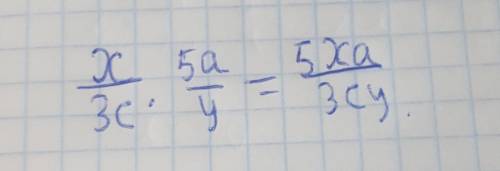 x/3c · 5a/y = 5xa/3cy.